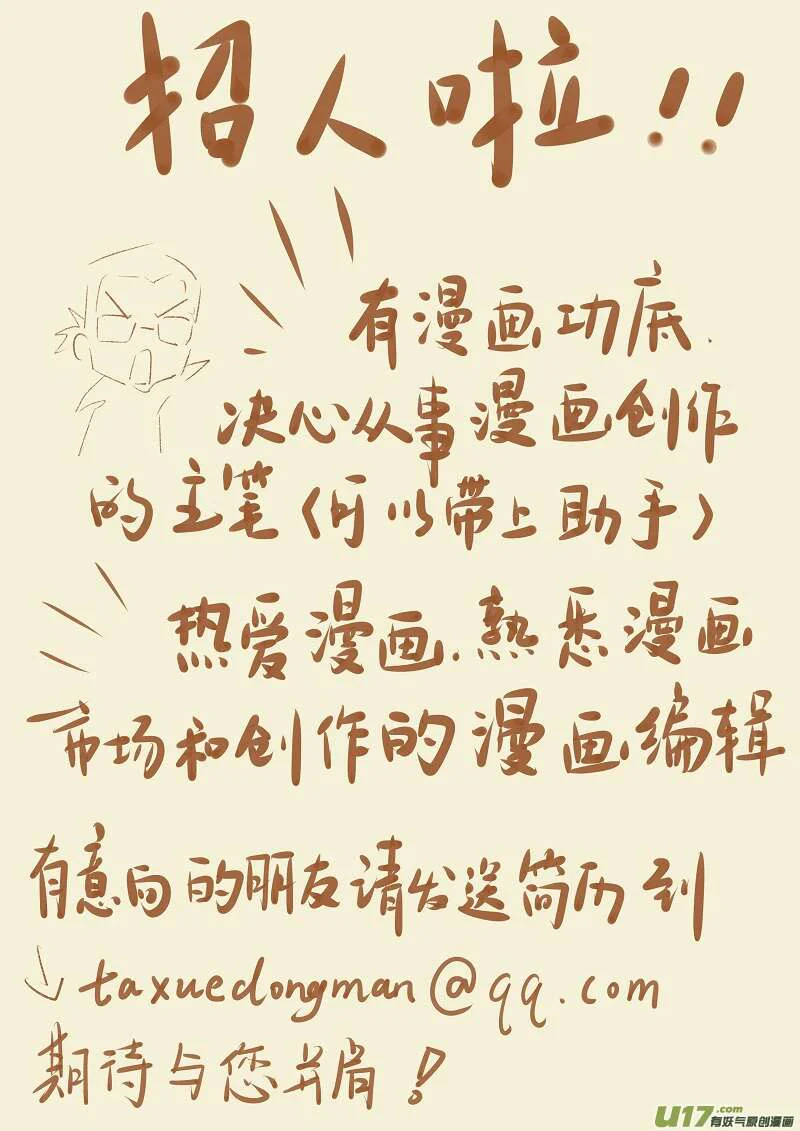 招人啦!!
有漫画功底.
决心从事漫画创作
的主笔(可以带上助手)
热爱漫画.熟悉漫画
市场和创作的漫画编辑
有意向的朋友请发送简历到
↓taxuedongman@qq.com
期待与您并肩!
U17.com
有妖气原创漫画